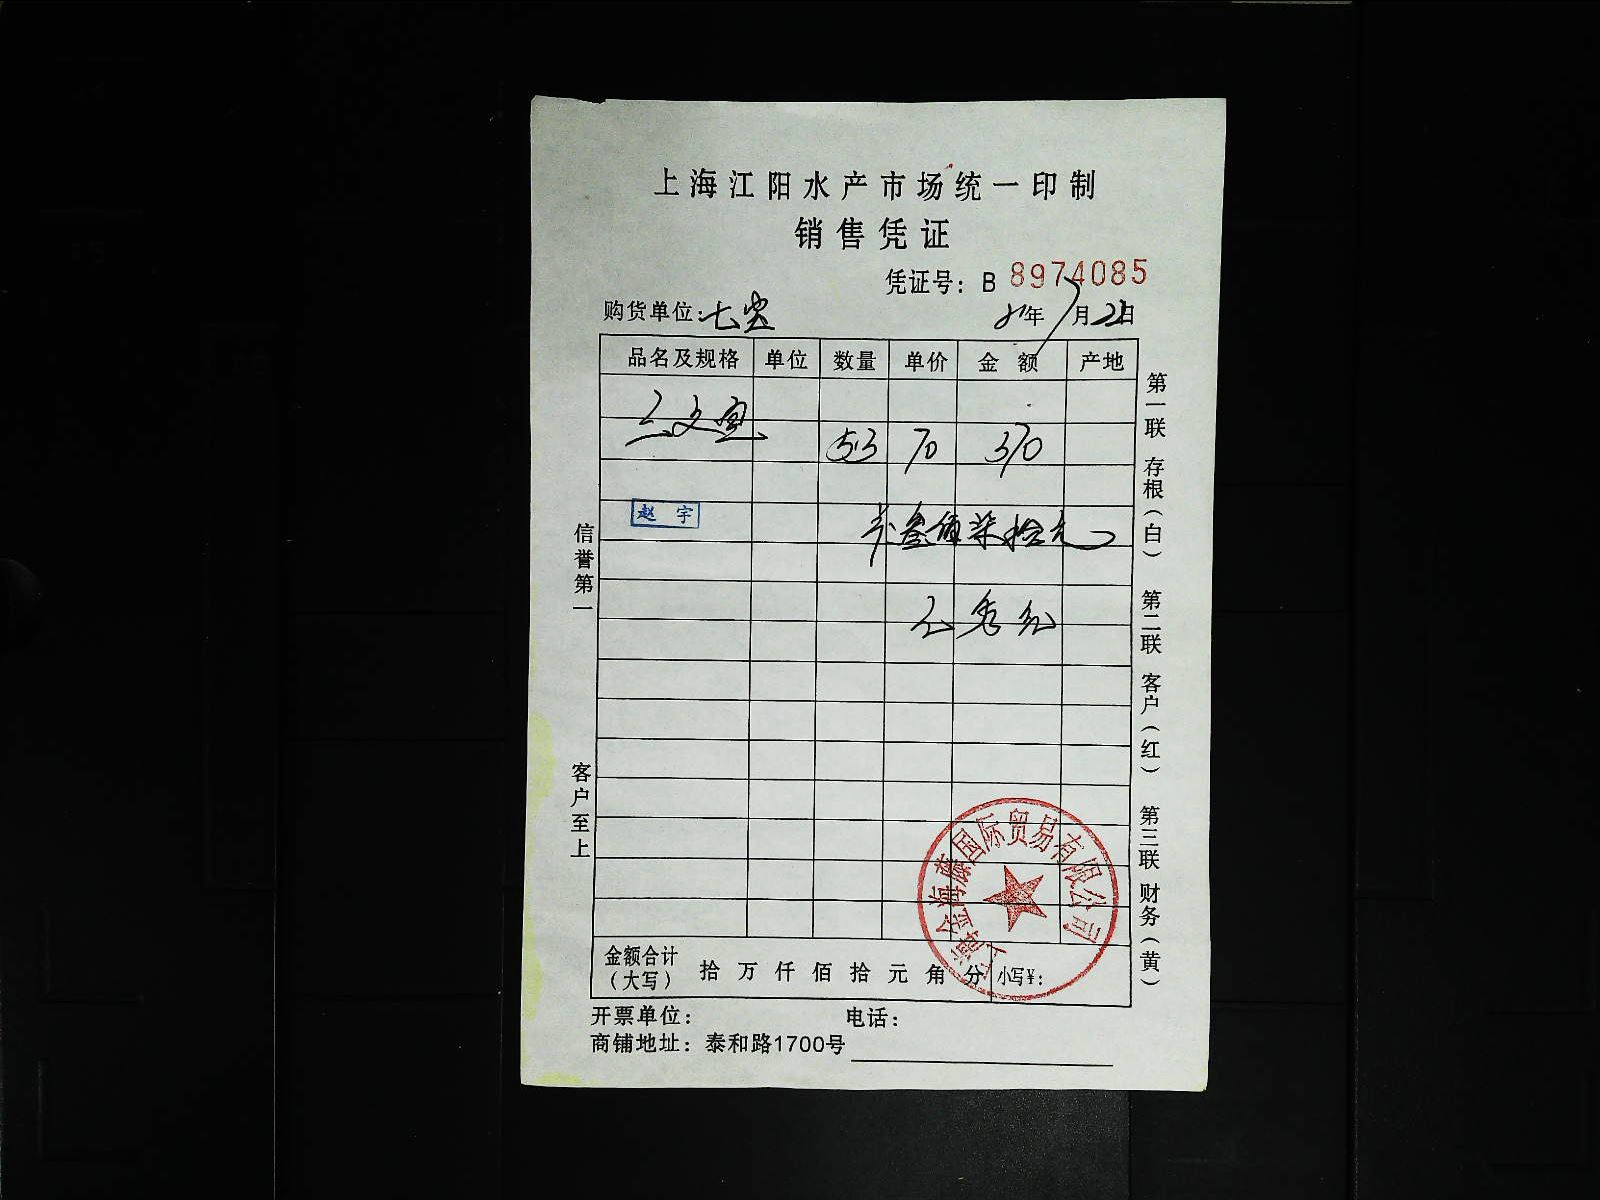 上海江阳水产市场统一印制
销售凭证
凭证号：B 8974085
购货单位：七 年7月 日
品名及规格 单位 数量 单价 金额 产地
三文鱼 5.3 70 370
赵宇
叁佰柒拾元
金额合计（大写） 拾万仟佰拾元角分 小写¥：
开票单位： 电话：
商铺地址：泰和路1700号
信誉第一 客户至上
第一联 存根（白） 第二联 客户（红） 第三联 财务（黄）
上海金海藤国际贸易有限公司